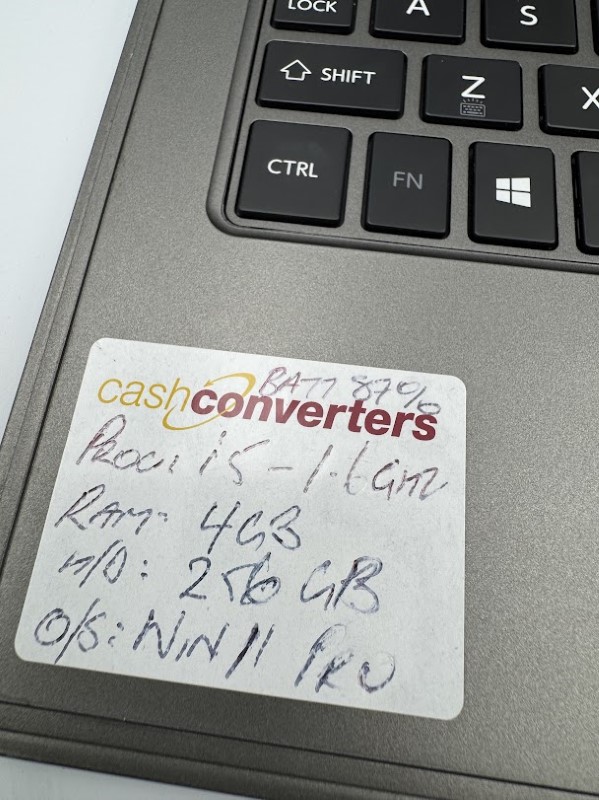 LOCK A S
SHIFT Z X
CTRL FN
BATT 87%
cash converters
PROC: i5 - 1.6GHZ
RAM- 4GB
H/D: 256 GB
O/S: WIN 11 PRO